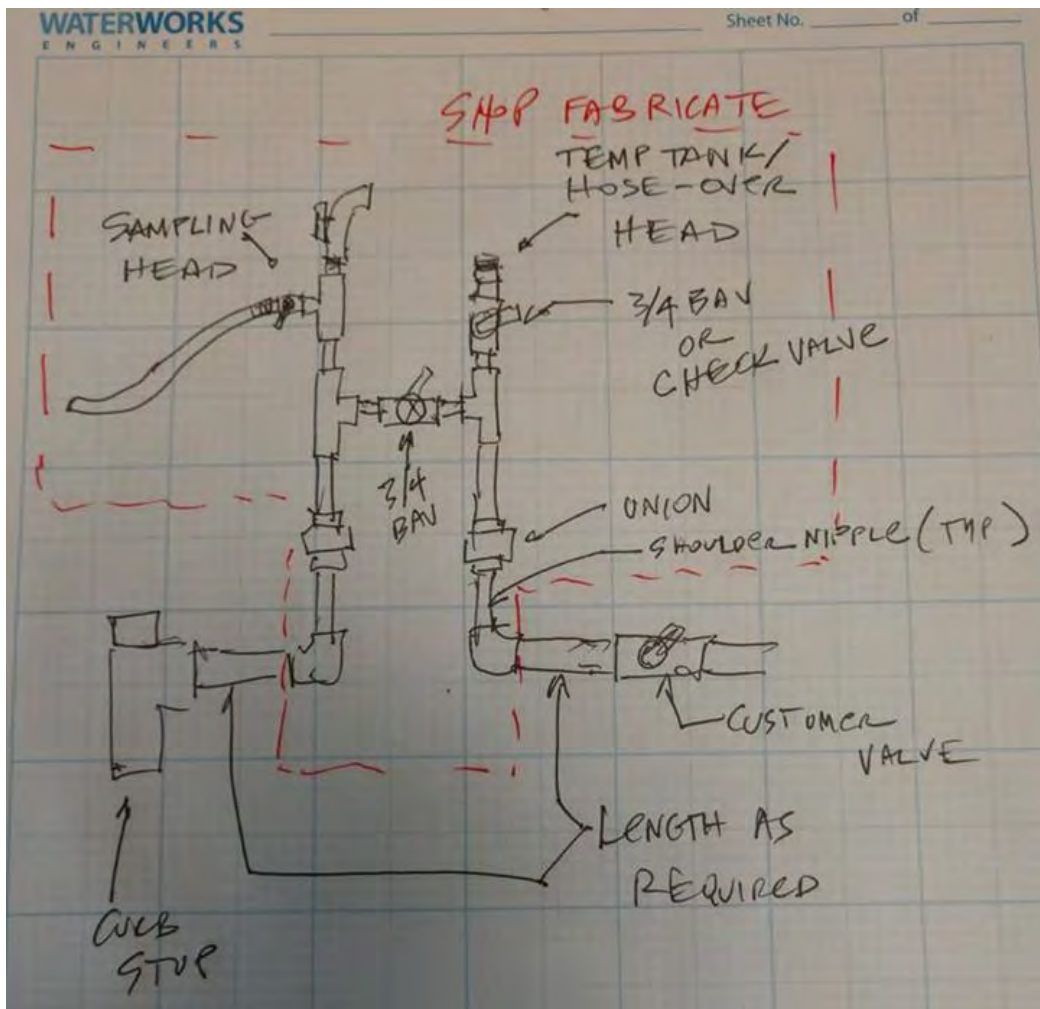 WATERWORKS
ENGINEERS
Sheet No. of
SHOP FABRICATE
TEMP TANK/
HOSE-OVER
HEAD
SAMPLING
HEAD
3/4 BAV
OR
CHECK VALVE
3/4
BAV
UNION
SHOULDER NIPPLE (TYP)
CUSTOMER
VALVE
LENGTH AS
REQUIRED
CURB
STOP